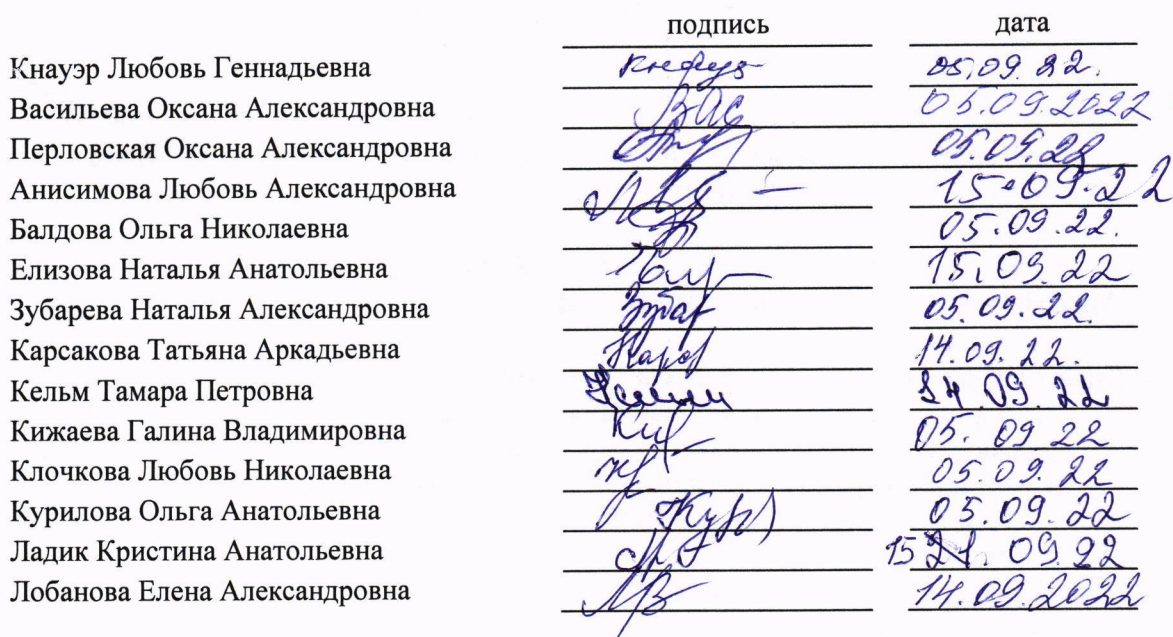 подпись дата
Кнауэр Любовь Геннадьевна 05.09.22.
Васильева Оксана Александровна Вас 05.09.2022
Перловская Оксана Александровна 05.09.22
Анисимова Любовь Александровна 15.09.22
Балдова Ольга Николаевна 05.09.22.
Елизова Наталья Анатольевна 15.09.22
Зубарева Наталья Александровна Зубар 05.09.22.
Карсакова Татьяна Аркадьевна 14.09.22.
Кельм Тамара Петровна 14.09.22
Кижаева Галина Владимировна 05.09 22
Клочкова Любовь Николаевна 05.09.22
Курилова Ольга Анатольевна 05.09.22
Ладик Кристина Анатольевна 15 09.22
Лобанова Елена Александровна 14.09.2022